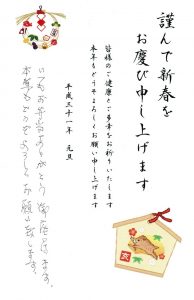 謹んで新春を
お慶び申し上げます
皆様のご健康とご多幸をお祈りいたします
本年もどうぞよろしくお願い申し上げます
平成三十一年 元旦
いつもお弁当ありがとう御座居ます。
本年もどうぞよろしくお願い致します。
亥